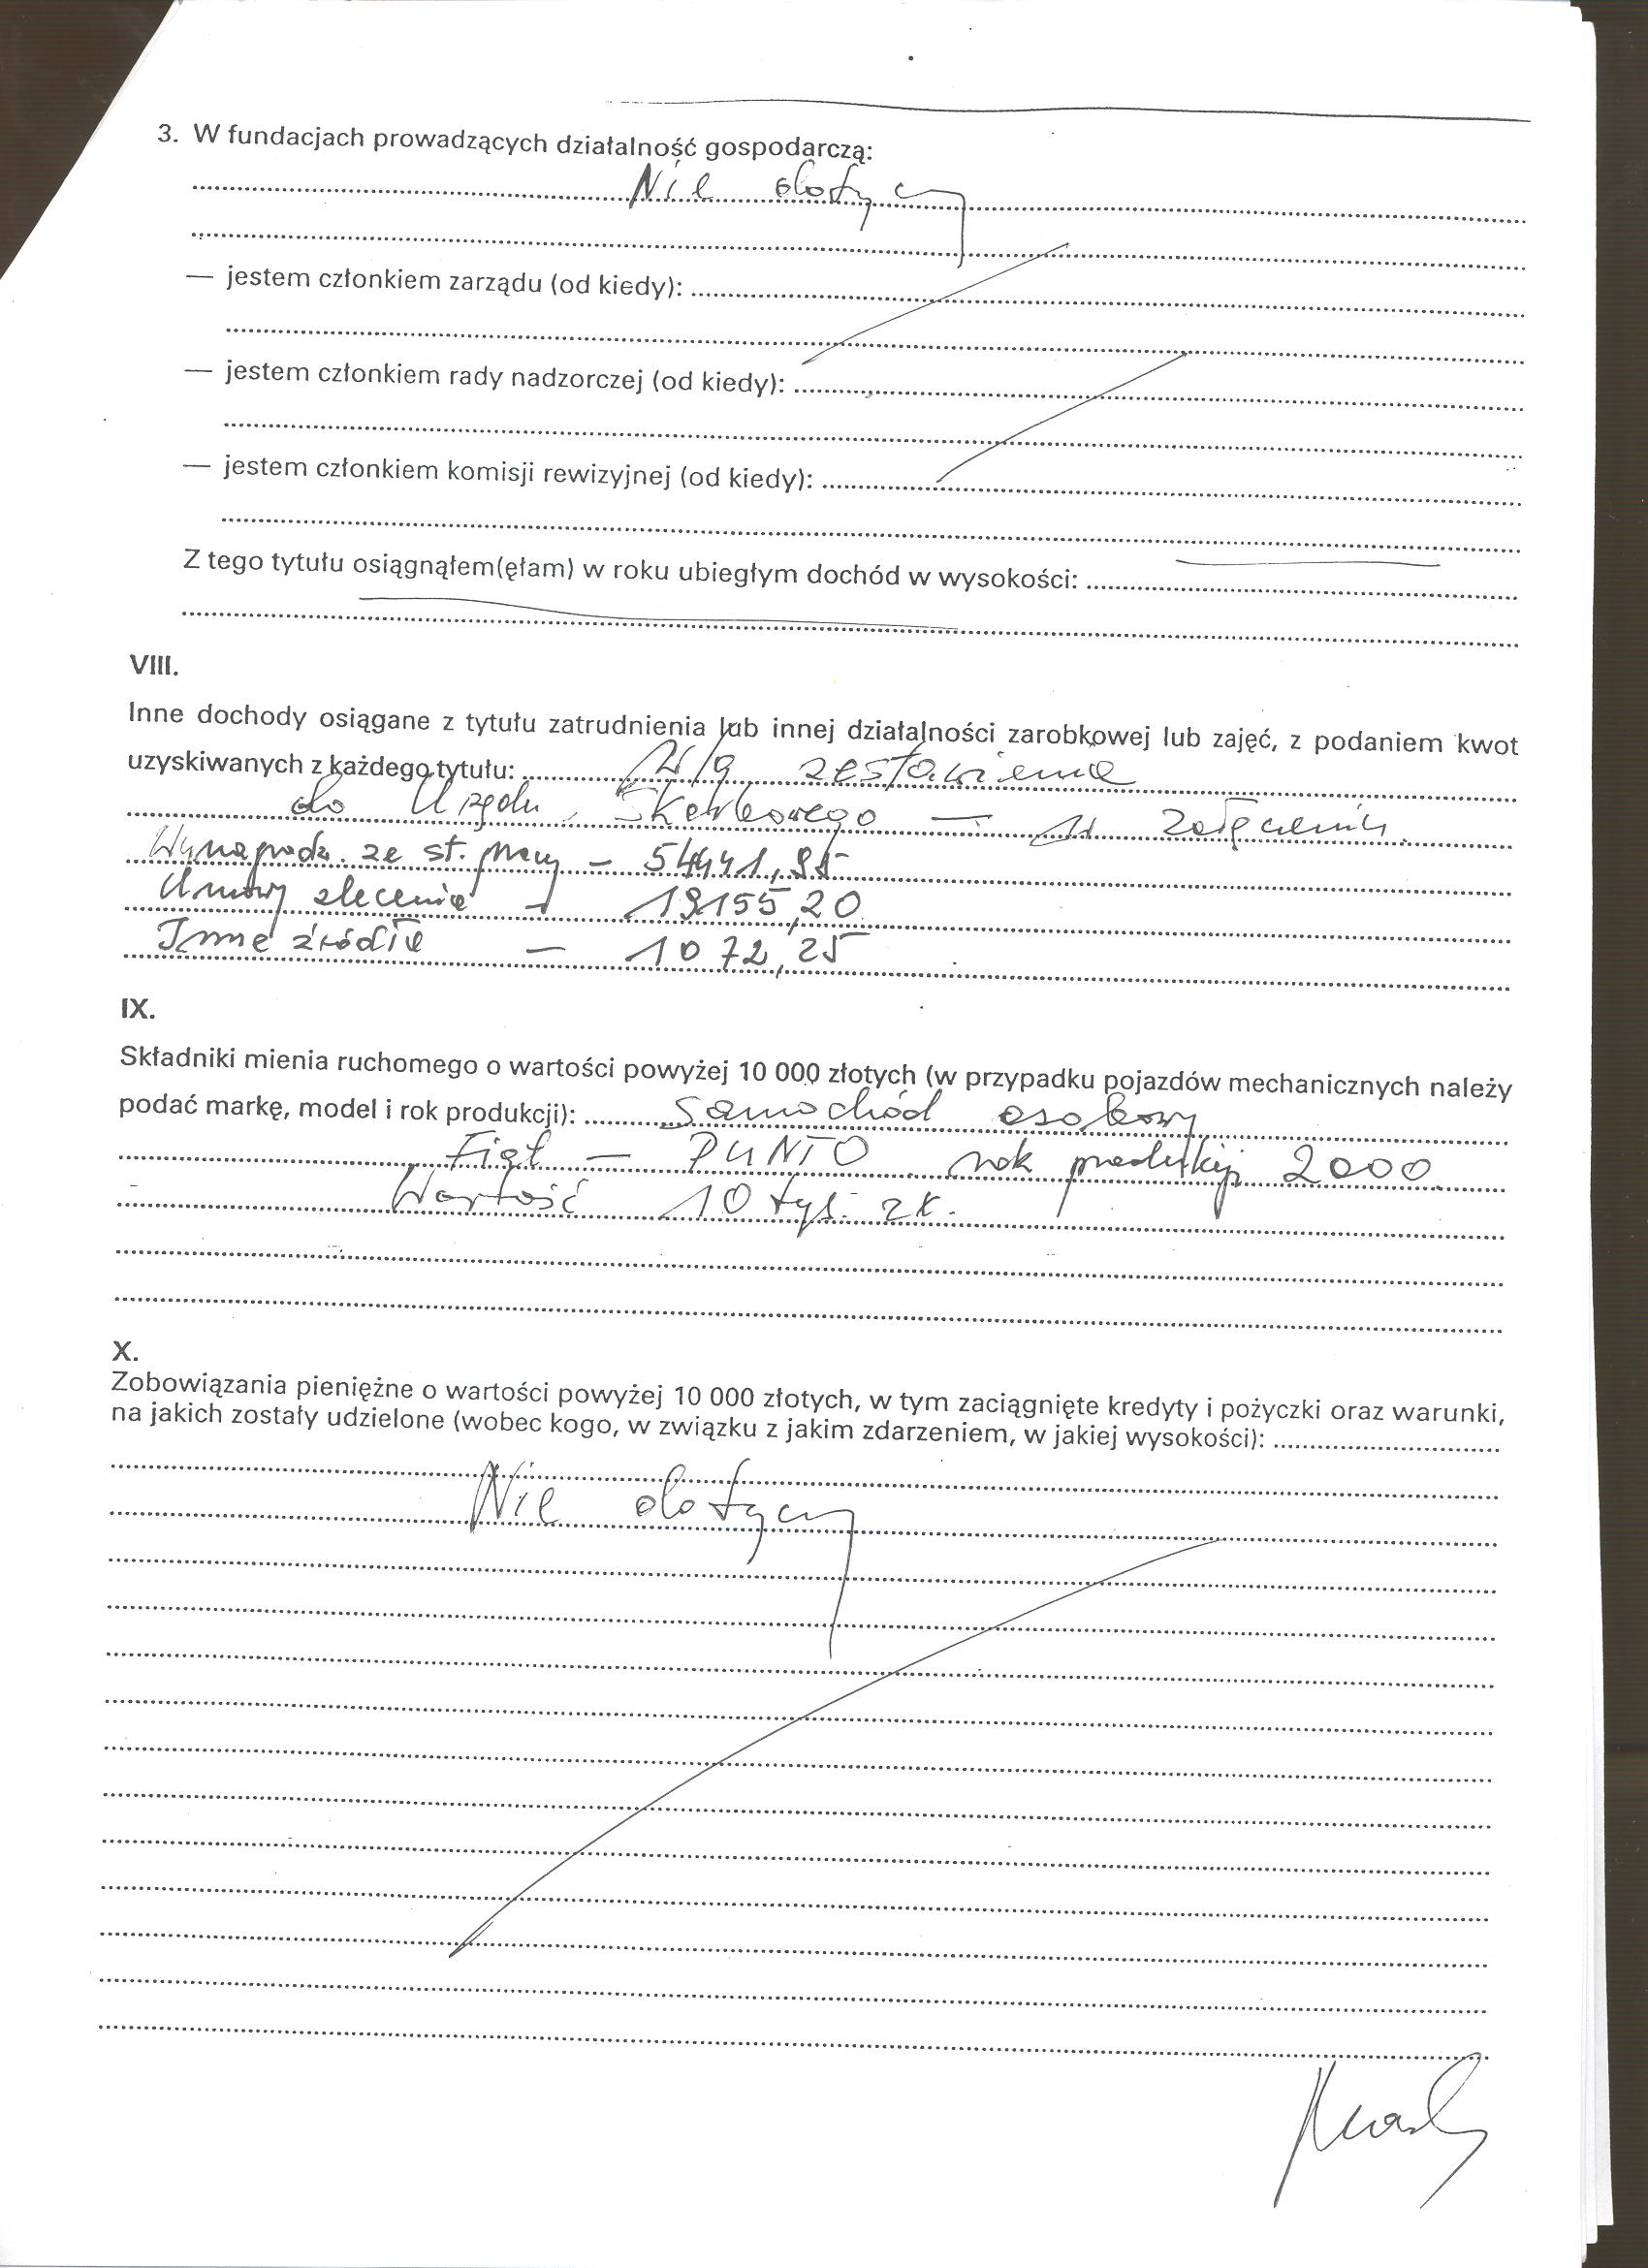 3. W fundacjach prowadzących działalność gospodarczą:
Nie dotyczy
— jestem członkiem zarządu (od kiedy):
— jestem członkiem rady nadzorczej (od kiedy):
— jestem członkiem komisji rewizyjnej (od kiedy):
Z tego tytułu osiągnąłem(ęłam) w roku ubiegłym dochód w wysokości:
VIII.
Inne dochody osiągane z tytułu zatrudnienia lub innej działalności zarobkowej lub zajęć, z podaniem kwot
uzyskiwanych z każdego tytułu: W/g zestawienia
do Urzędu Skarbowego — w załączeniu.
Wynagrodz. ze st. pracy – 54441,95
Umowy zlecenia – 19155,20
Inne źródła – 1072,25
IX.
Składniki mienia ruchomego o wartości powyżej 10 000 złotych (w przypadku pojazdów mechanicznych należy
podać markę, model i rok produkcji): Samochód osobowy
Fiat — PUNTO rok produkcji 2000.
Wartość 10 tys. zł.
X.
Zobowiązania pieniężne o wartości powyżej 10 000 złotych, w tym zaciągnięte kredyty i pożyczki oraz warunki,
na jakich zostały udzielone (wobec kogo, w związku z jakim zdarzeniem, w jakiej wysokości):
Nie dotyczy